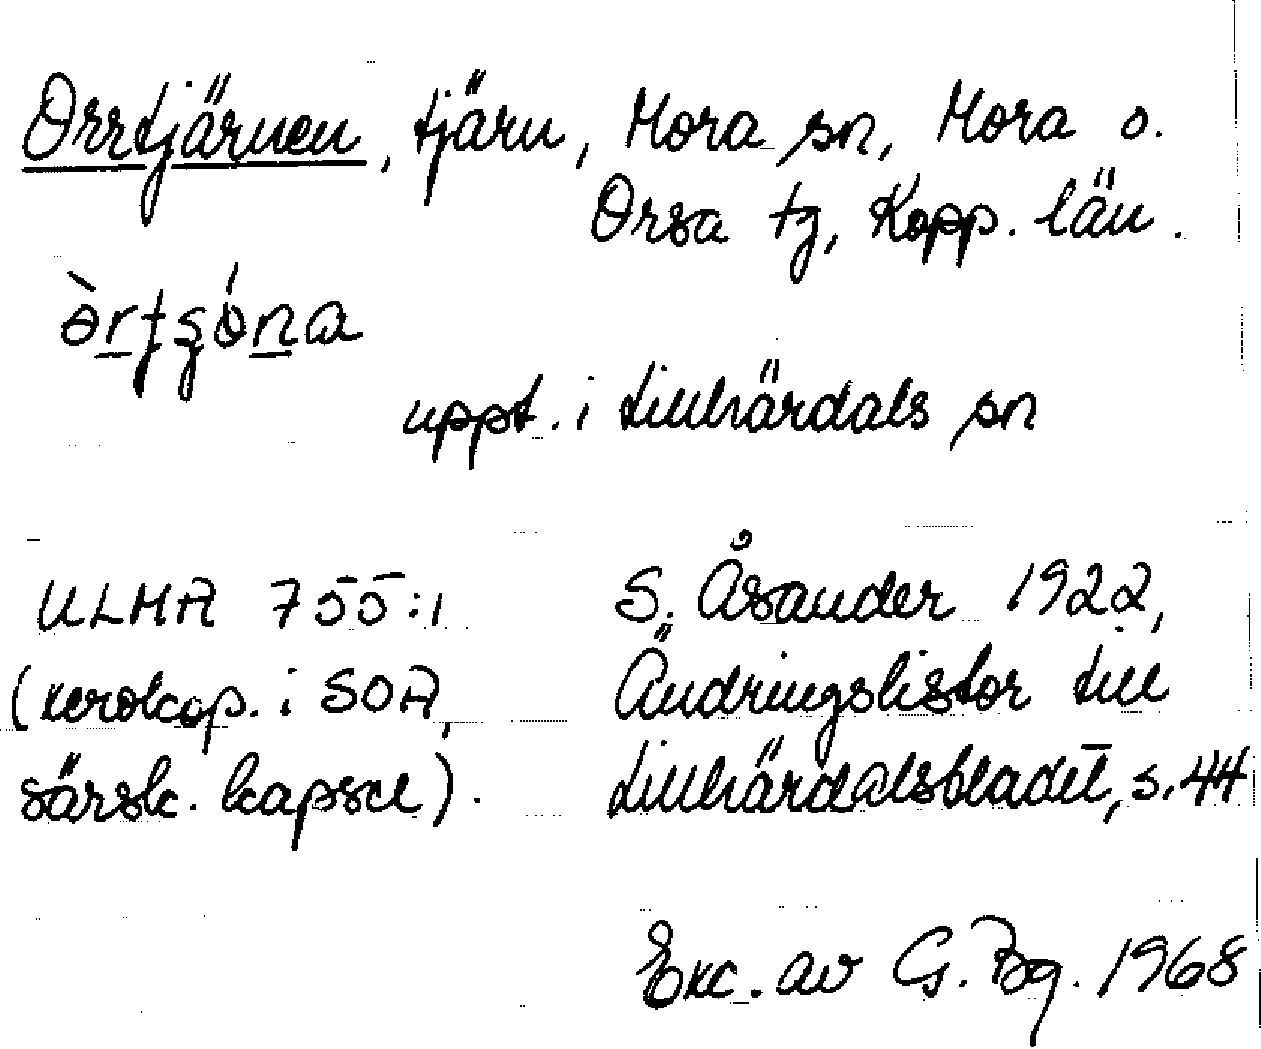 Orrtjärnen, tjärn, Mora sn, Mora o.
Orsa tg, Kopp. län.
uppt. i Lillhärdals sn
ULMA 755:1
(xerokop. i SOA,
särsk. kapsel).
S. Åsander 1922,
Ändringslistor till
Lillhärdalsbladet, s. 44
Exc. av G. Bg. 1968